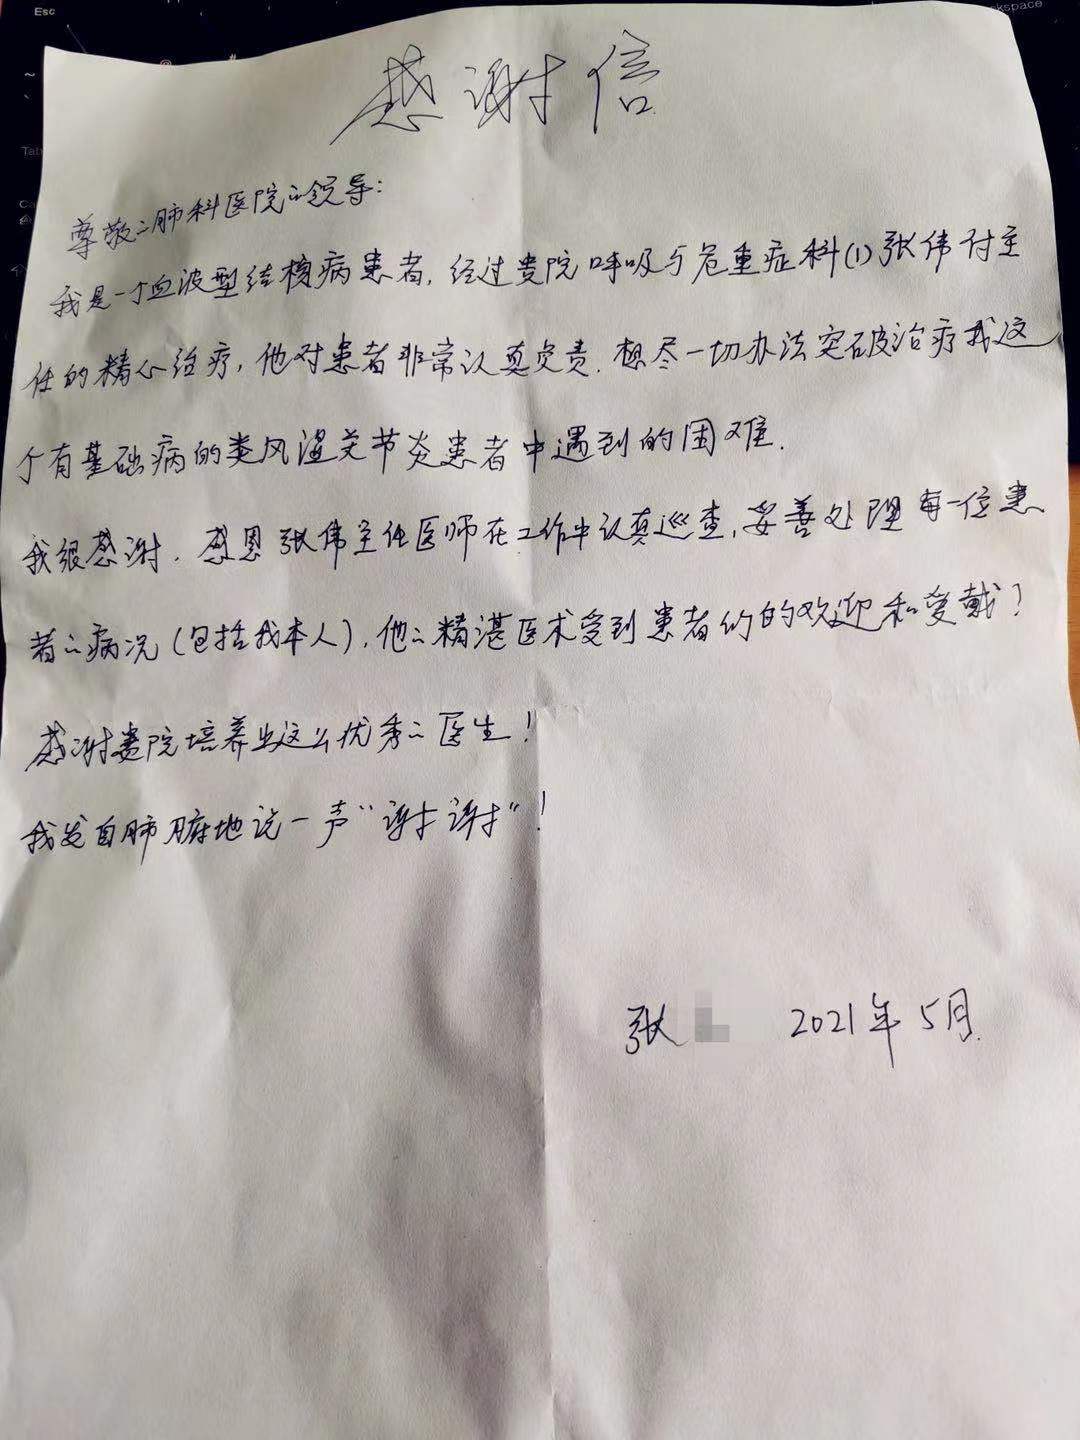 Esc
感谢信
尊敬的肺科医院的领导：
我是一个血波型结核病患者，经过贵院呼吸与危重症科(1)张伟付主
任的精心治疗，他对患者非常认真负责．想尽一切办法突破治疗我这
个有基础病的类风湿关节炎患者中遇到的困难．
我很感谢．感恩张伟主任医师在工作中认真巡查，妥善处理每一位患
者的病况（包括我本人），他的精湛医术受到患者们的欢迎和爱戴！
感谢贵院培养出这么优秀的医生！
我发自肺腑地说一声“谢谢”！
张 2021年5月